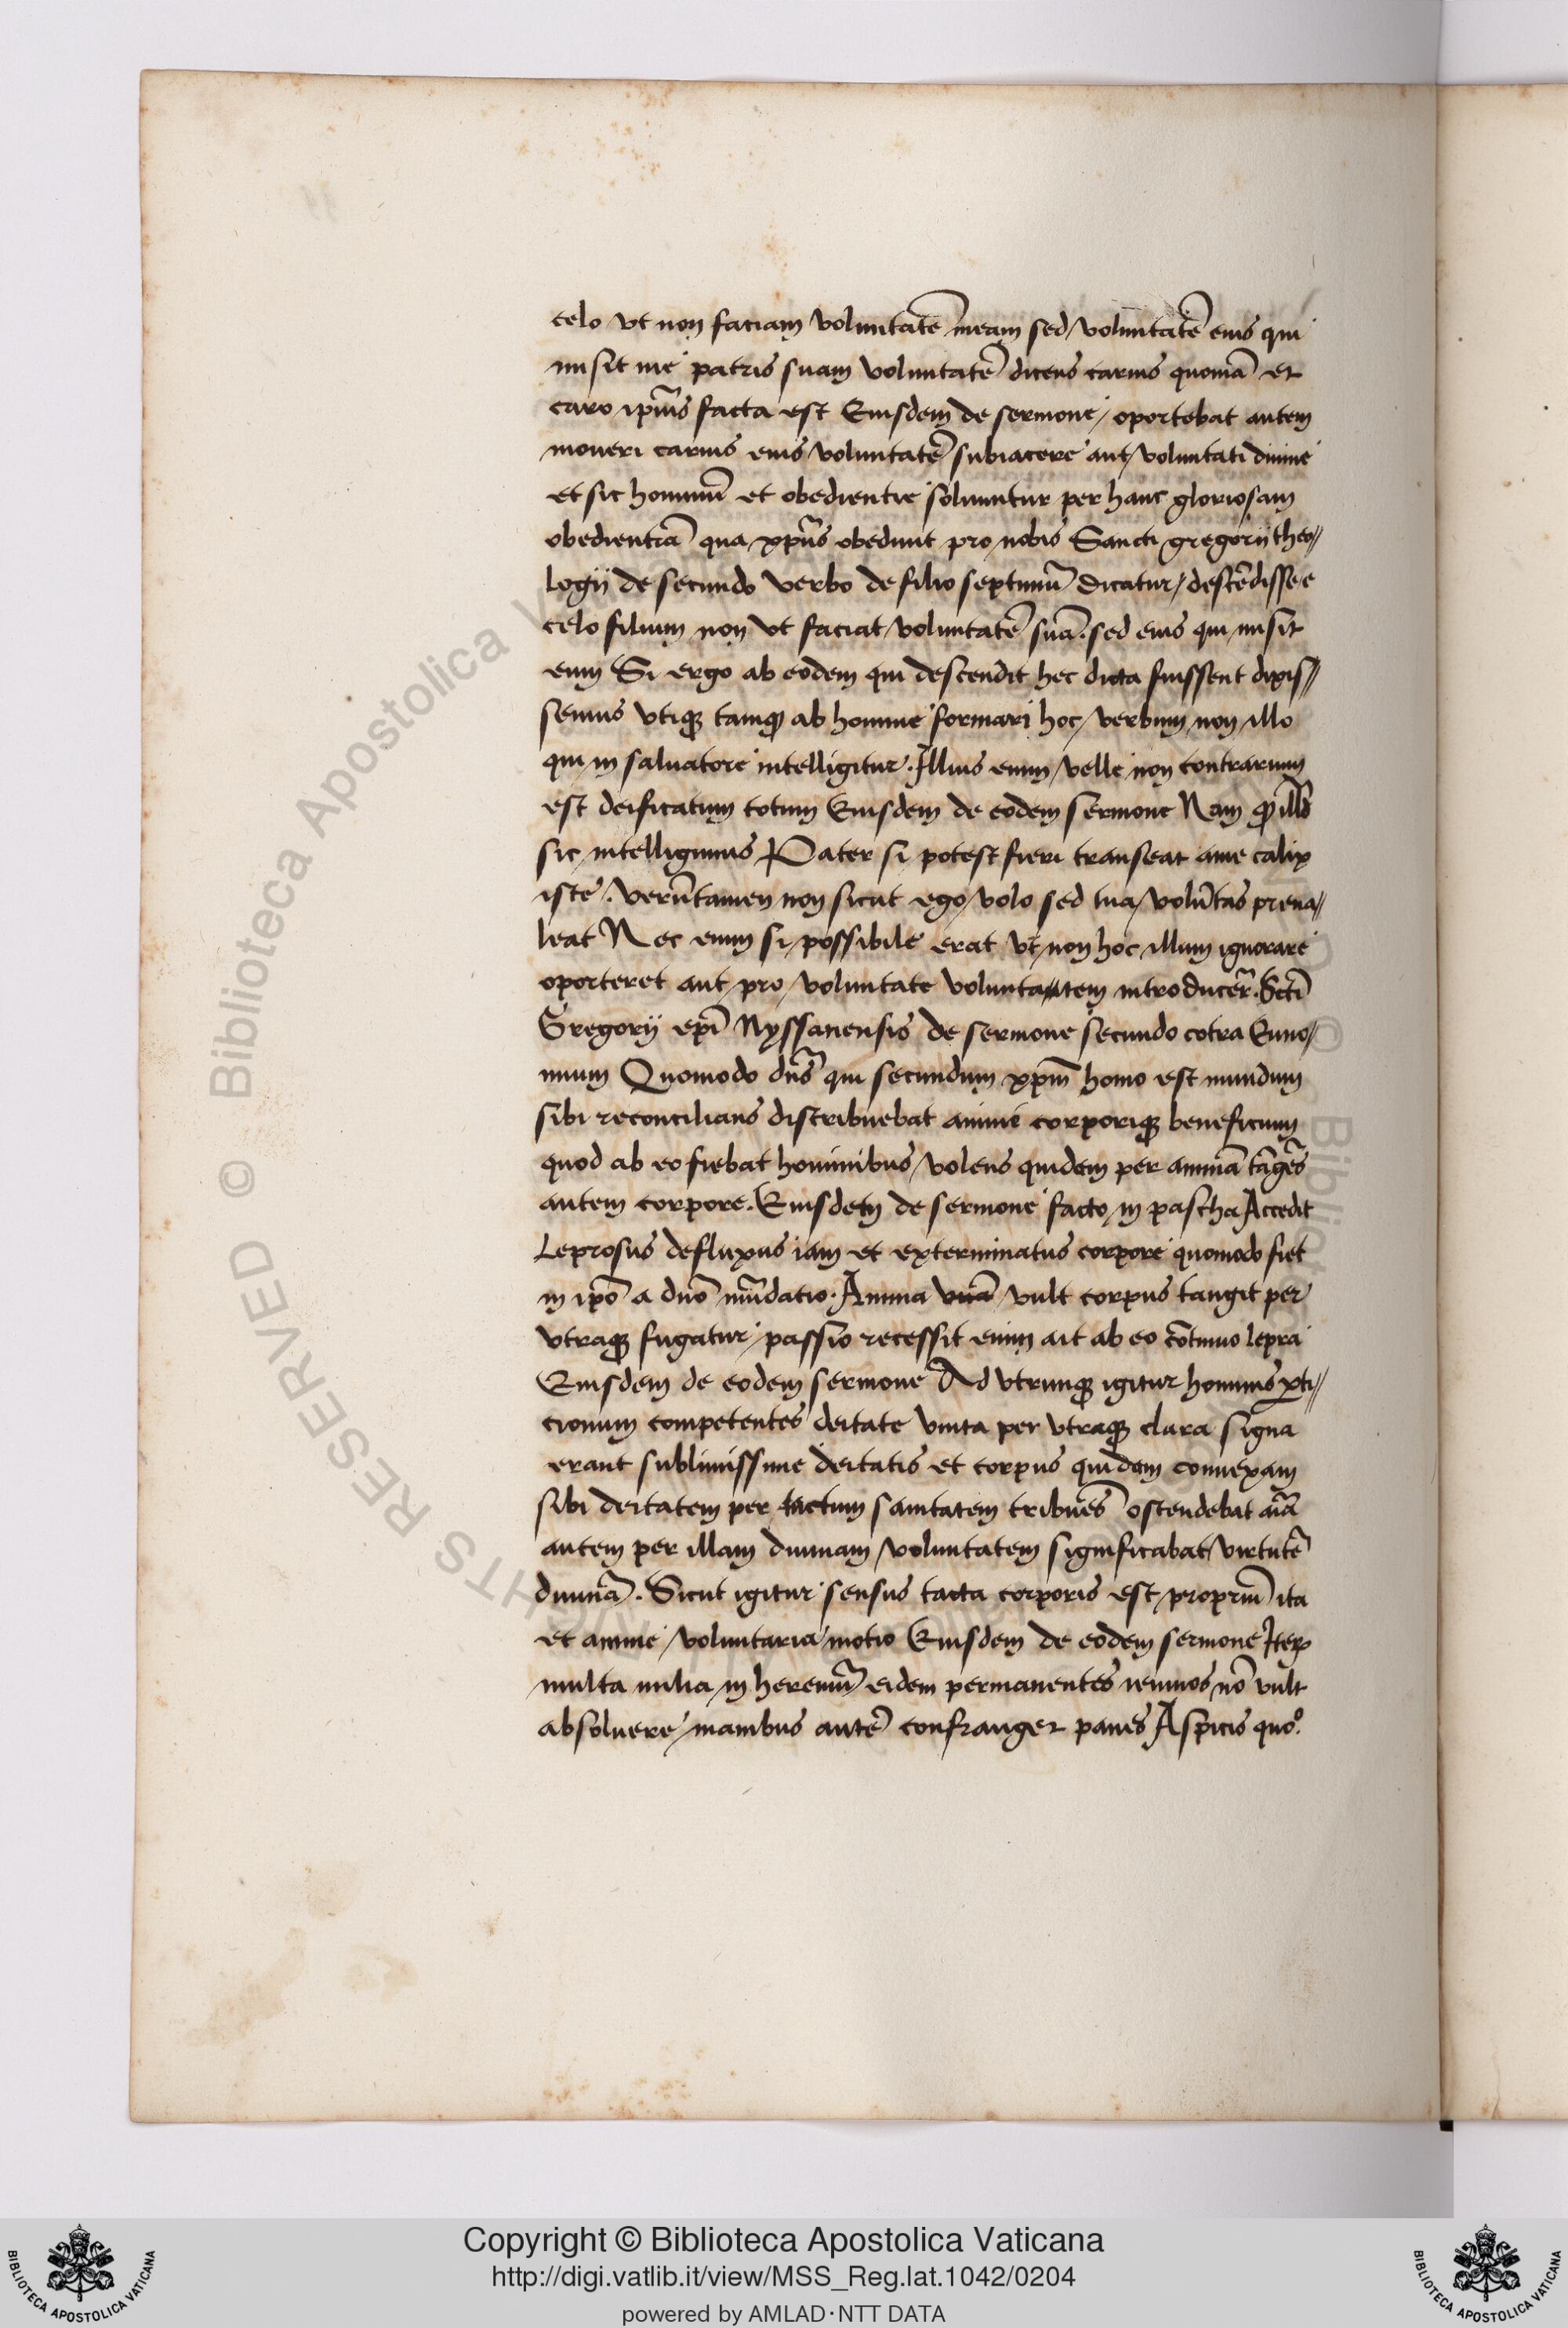 celo vt non faciam voluntatē meam sed voluntatē eius qui
misit me patris suam voluntatē dicens carnis quoniā et
caro ip̄ius facta est Eiusdem de sermone oportebat autem
moueri carnis eius voluntatē subiacere aut voluntati diuine
et sic hominū et obedientie soluuntur per hanc gloriosam
obedientiā qua xp̄us obediuit pro nobis Sancti gregorij theo//
logij de secundo verbo de filio septimū dicatur descēdisse e
celo filium non vt faciat voluntatē suā. sed eius qui misit
eum Si ergo ab eodem qui descendit hec dicta fuissent dixis//
semus vtiqꝫ tamqꝫ ab homine formari hoc verbum non illo
qui in saluatore intelligitur. Illius enim velle non contrarium
est deificatum totum Eiusdem de eodem sermone Nam
sic intelligimus Pater si potest fieri transeat ame calix
iste. verūtamen non sicut ego volo sed tua volūtas preua//
leat Nec enim si possibile erat vt non hoc illum ignorare
oporteret aut pro voluntate voluntatem introducer̄. Scti
Gregorij ep̄i Nyssanensis de sermone secundo cotra Euno/
mium Quomodo dn̄s qui secundum xp̄m homo est mundum
sibi reconcilians distribuebat anime corporiqꝫ beneficium
quod ab eo fiebat hominibus volens quidem per animā tāgēs
autem corpore. Eiusdem de sermone facto in pascha Accedit
Leprosus defluxus iam et exterminatus corpore quomodo fiet
in ip̄o a dn̄o mūdatio. Anima vult corpus tangit per
vtraqꝫ fugatur passio recessit enim ait ab eo cōtinuo lepra
Eiusdem de eodem sermone Ad vtrunqꝫ igitur hominis
cionum competentes deitate vnita per vtraqꝫ clara signa
erant sublimissime deitatis et corpus quidem connexam
sibi deitatem per tactum sanitatem tribuēs ostendebat aīa
autem per illam diuinam voluntatem significabat virtutē
diuinā. Sicut igitur sensus tacta corporis est propriū ita
et anime voluntaria motio Eiusdem de eodem sermone
multa milia in heremū eidem permanentes ieiunos nō vult
absoluere manibus autē confranger panes Aspicis quoº.
Copyright © Biblioteca Apostolica Vaticana
http://digi.vatlib.it/view/MSS_Reg.lat.1042/0204
powered by AMLAD·NTT DATA